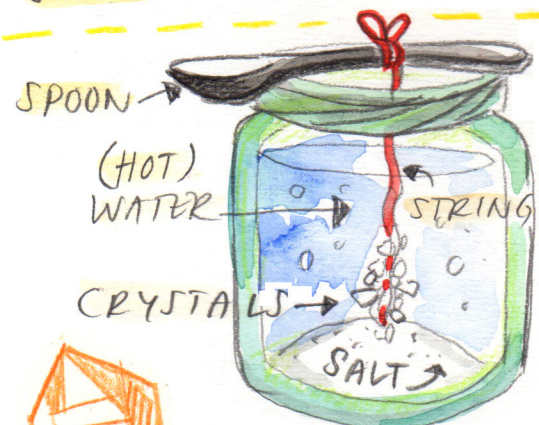 SPOON
(HOT)
WATER
STRING
CRYSTALS
SALT